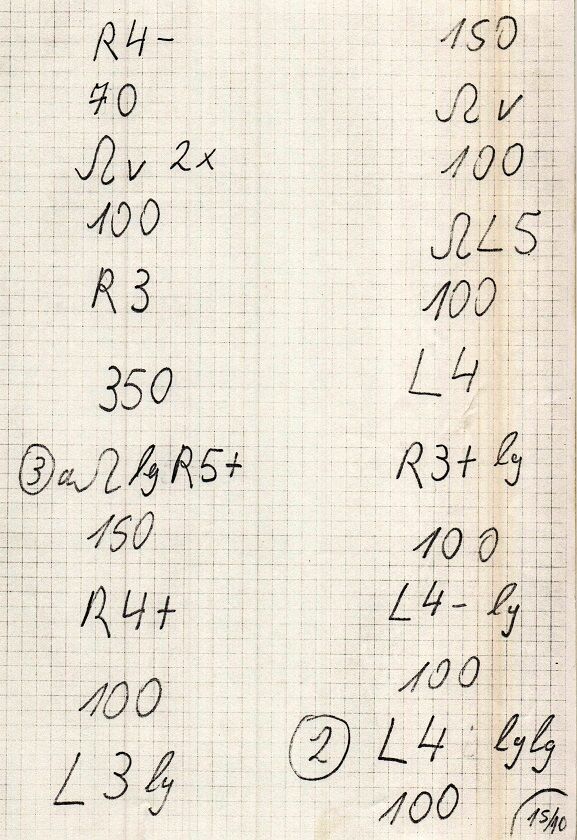 R4-
70
Ωv 2x
100
R3
350
③ a Ω lg R5+
150
R4+
100
L3 lg
150
Ωv
100
ΩL5
100
L4
R3+ lg
100
L4- lg
100
② L4 lglg
100
15/10